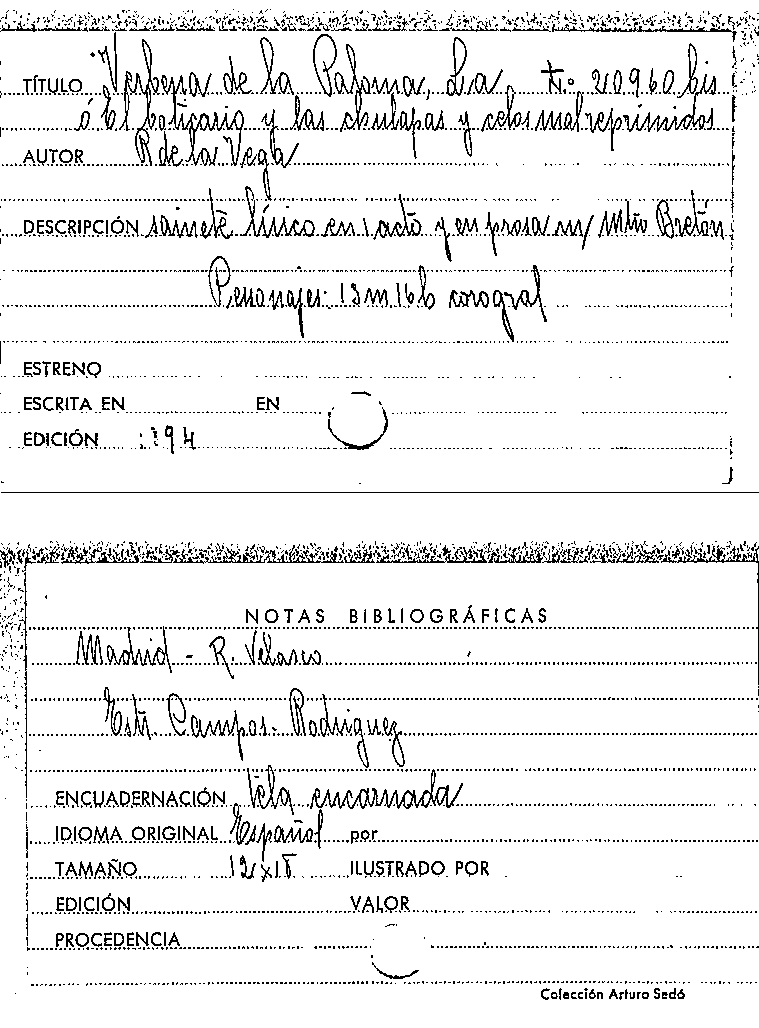 TÍTULO Verbena de la Paloma, La N.º 20960 bis
ó El boticario y las chulapas y celos mal reprimidos
AUTOR R de la Vega
DESCRIPCIÓN sainete lírico en 1 acto y en prosa m/ Mtro Bretón
Personajes: 13 m. 16 h coro gral
ESTRENO
ESCRITA EN EN
EDICIÓN 1894
NOTAS BIBLIOGRÁFICAS
Madrid - R. Velasco
Estr. Campos. Rodriguez
ENCUADERNACIÓN tela encarnada
IDIOMA ORIGINAL Español por
TAMAÑO 12x ILUSTRADO POR
EDICIÓN VALOR
PROCEDENCIA
Colección Arturo Sedó